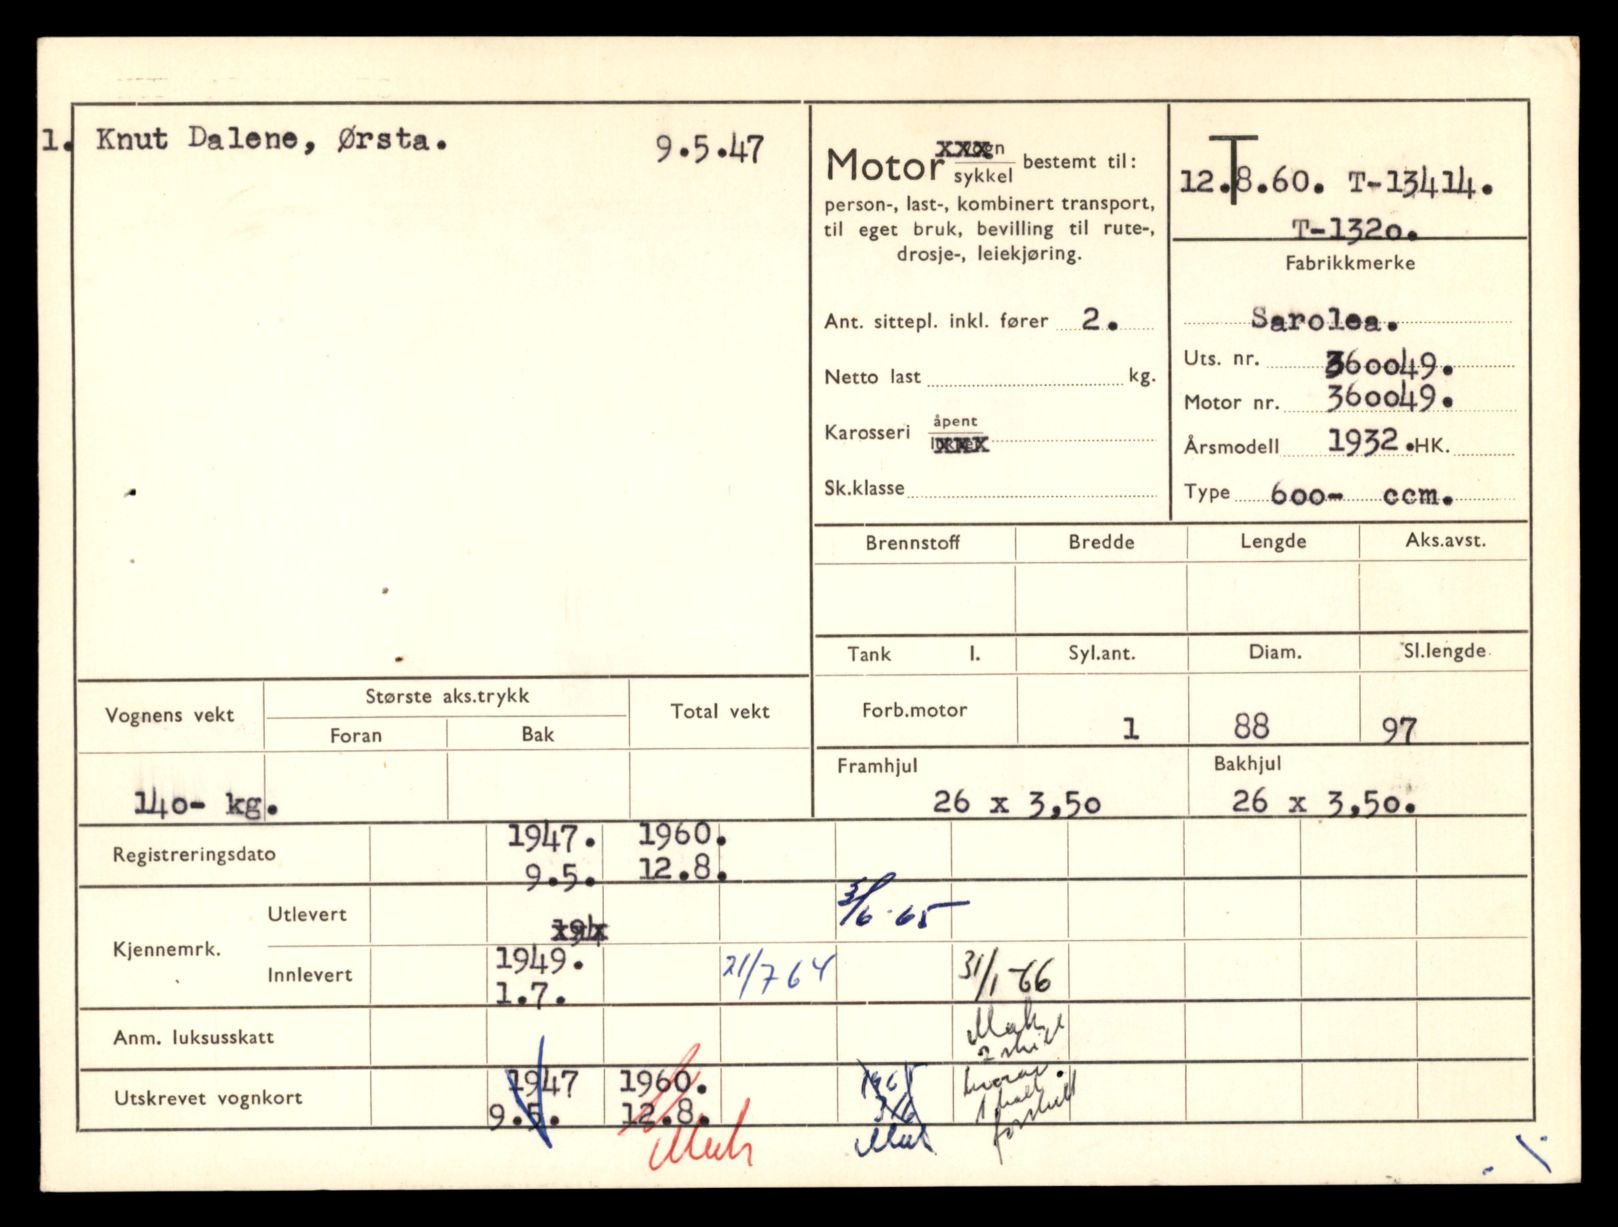 1. Knut Dalene, Ørsta. 9.5.47
Motor
sykkel
bestemt til:
person-, last-, kombinert transport,
til eget bruk, bevilling til rute-,
drosje-, leiekjøring.
T
12.8.60. T-13414.
T-1320.
Fabrikkmerke
Sarolea.
Ant. sittepl. inkl. fører 2.
Uts. nr. 360049.
Netto last kg.
Motor nr. 360049.
Karosseri åpent
Årsmodell 1932. HK.
Sk.klasse
Type 600- ccm.
Brennstoff Bredde Lengde Aks.avst.
Tank l. Syl.ant. Diam. Sl.lengde
Forb.motor 1 88 97
Vognens vekt Største aks.trykk Total vekt
Foran Bak
140- kg.
Framhjul Bakhjul
26 x 3,50 26 x 3,50.
Registreringsdato 1947. 1960.
9.5. 12.8.
Kjennemrk. Utlevert 3/6-65
Innlevert 1949. 21/7 64 31/1-66
1.7.
Anm. luksusskatt
Utskrevet vognkort 1947 1960. 1965
9.5. 12.8. 3/6